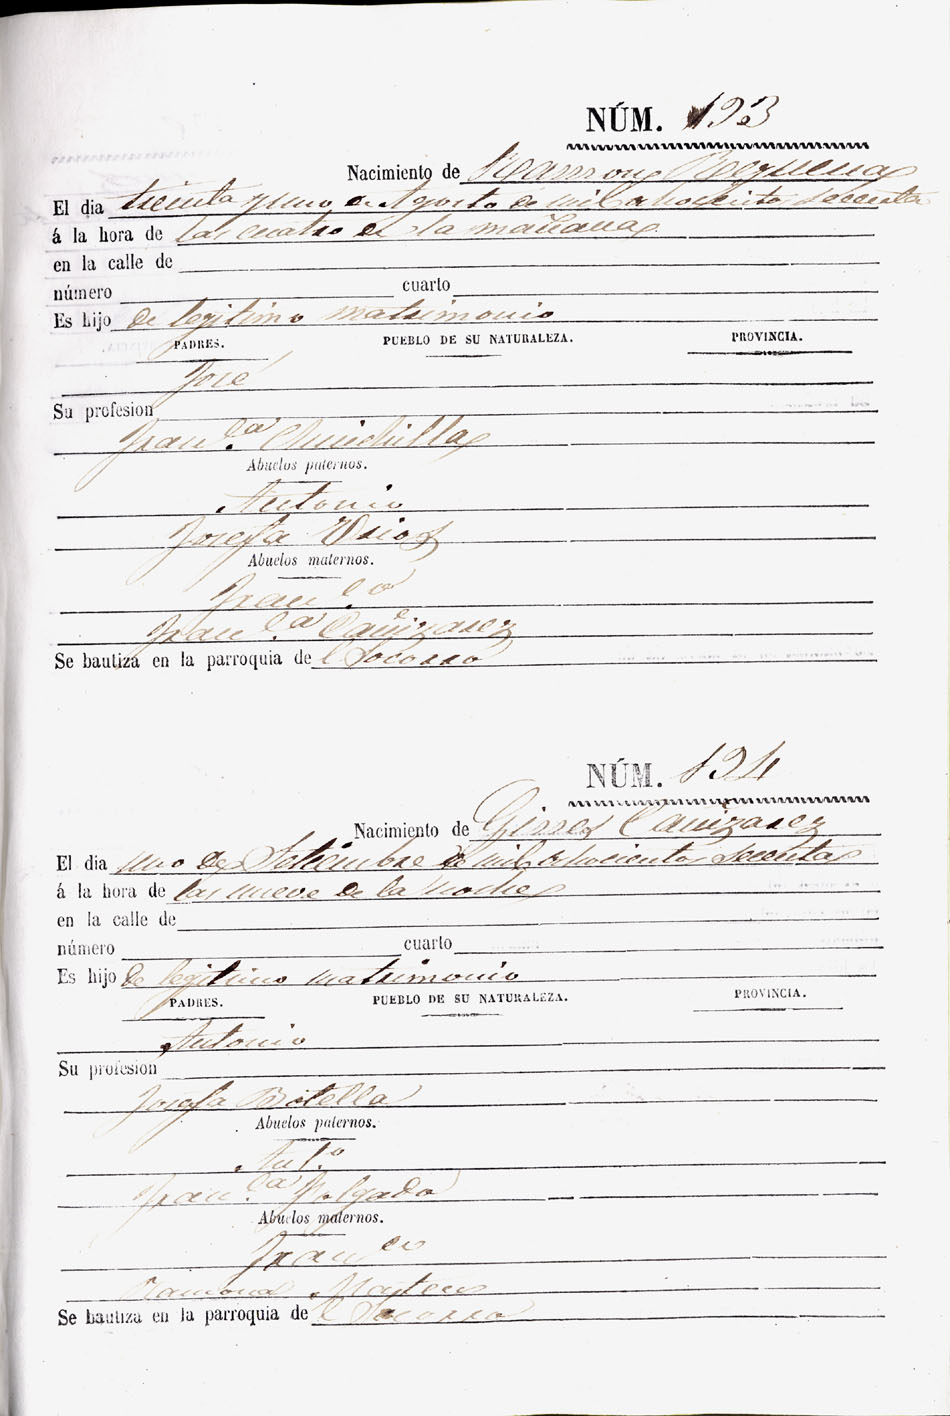 NÚM. 193
Nacimiento de Ramon Requena
El dia treinta y uno de Agosto de mil ochocientos secenta
á la hora de las cuatro de la mañana
en la calle de
número cuarto
Es hijo de legitimo matrimonio
PADRES. PUEBLO DE SU NATURALEZA. PROVINCIA.
José
Su profesion
Fran.ca Chinchilla
Abuelos paternos.
Antonio
Josefa Rios
Abuelos maternos.
Fran.co
Fran.ca Cañizarez
Se bautiza en la parroquia de l Socorro
NÚM. 194
Nacimiento de Gines Cañizarez
El dia uno de Setiembre de mil ochocientos secenta
á la hora de las nueve de la noche
en la calle de
número cuarto
Es hijo de legitimo matrimonio
PADRES. PUEBLO DE SU NATURALEZA. PROVINCIA.
Antonio
Su profesion
Josefa Botella
Abuelos paternos.
Ant.o
Fran.ca
Abuelos maternos.
Fran.co
Ramona
Se bautiza en la parroquia de l Socorro